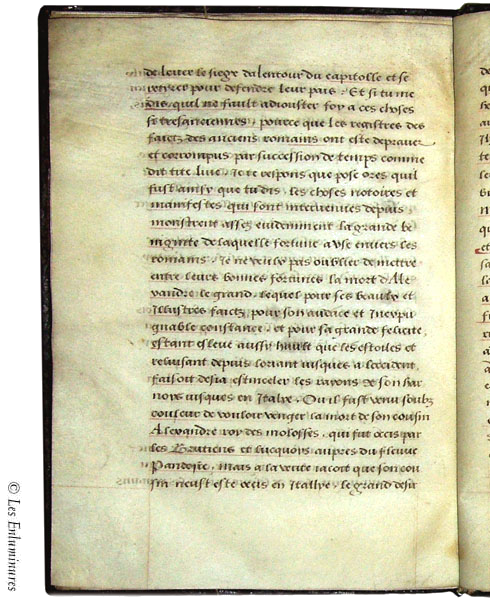 de lever le siege dalentour du capitolle et se
retirer pour defendre leur pais. Et si tu me
dis, quil ne fault adiouster foy a ces choses
si tresanciennes, pource que les registres des
faictz des anciens romains ont este deprauez
et corrompus par succession de temps comme
dit tite liue. Je te respons que pose ores quil
fust ainsy que tu dis, les choses notoires et
manifestes qui sont intervenues depuis
monstrent assez euidemment la grande be
nignite de laquelle fortune a vse enuers les
romains. Je ne veulx pas oublier de mettre
entre leurs bonnes fortunes la mort dAle
xandre le grand, lequel pour ses beaulx et
Illustres faictz, pour son audace et Inexpu
gnable constance, et pour sa grande felicite,
estant esleue aussy hault que les estoiles et
reluisant depuis lorient iusques a loccident,
faisoit desia estinceler les rayons de son har
noys iusques en Italye, Ou il fust venu soubz
couleur de vouloir venger la mort de son cousin
Alexandre roy des molosses, qui fut occis par
les Brutiens et lucquois aupres du fleuue
Pandosie, mais a la verite iacoit que son cou
sin neust este occis en Itallye, le grand desir
© Les Enluminures